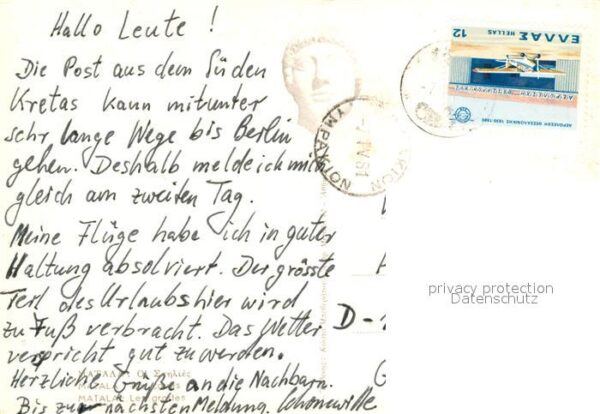 Hallo Leute!
Die Post aus dem Süden
Kretas kann mitunter
sehr lange Wege bis Berlin
gehen. Deshalb melde ich mich
gleich am zweiten Tag.
Meine Flüge habe ich in guter
Haltung absolviert. Der grösste
Teil des Urlaubs hier wird
zu Fuß verbracht. Das Wetter
verspricht gut zu werden.
Herzliche Grüße an die Nachbarn.
Bis zur nächsten Meldung.
ΕΛΛΑΣ
HELLAS
12
ΤΥΜΠΑΚΙΟΝ
IV 81
D-
privacy protection
Datenschutz
ΜΑΤΑΛΑ Οἱ Σπηλιές
MATALA
MATALA Les grottes